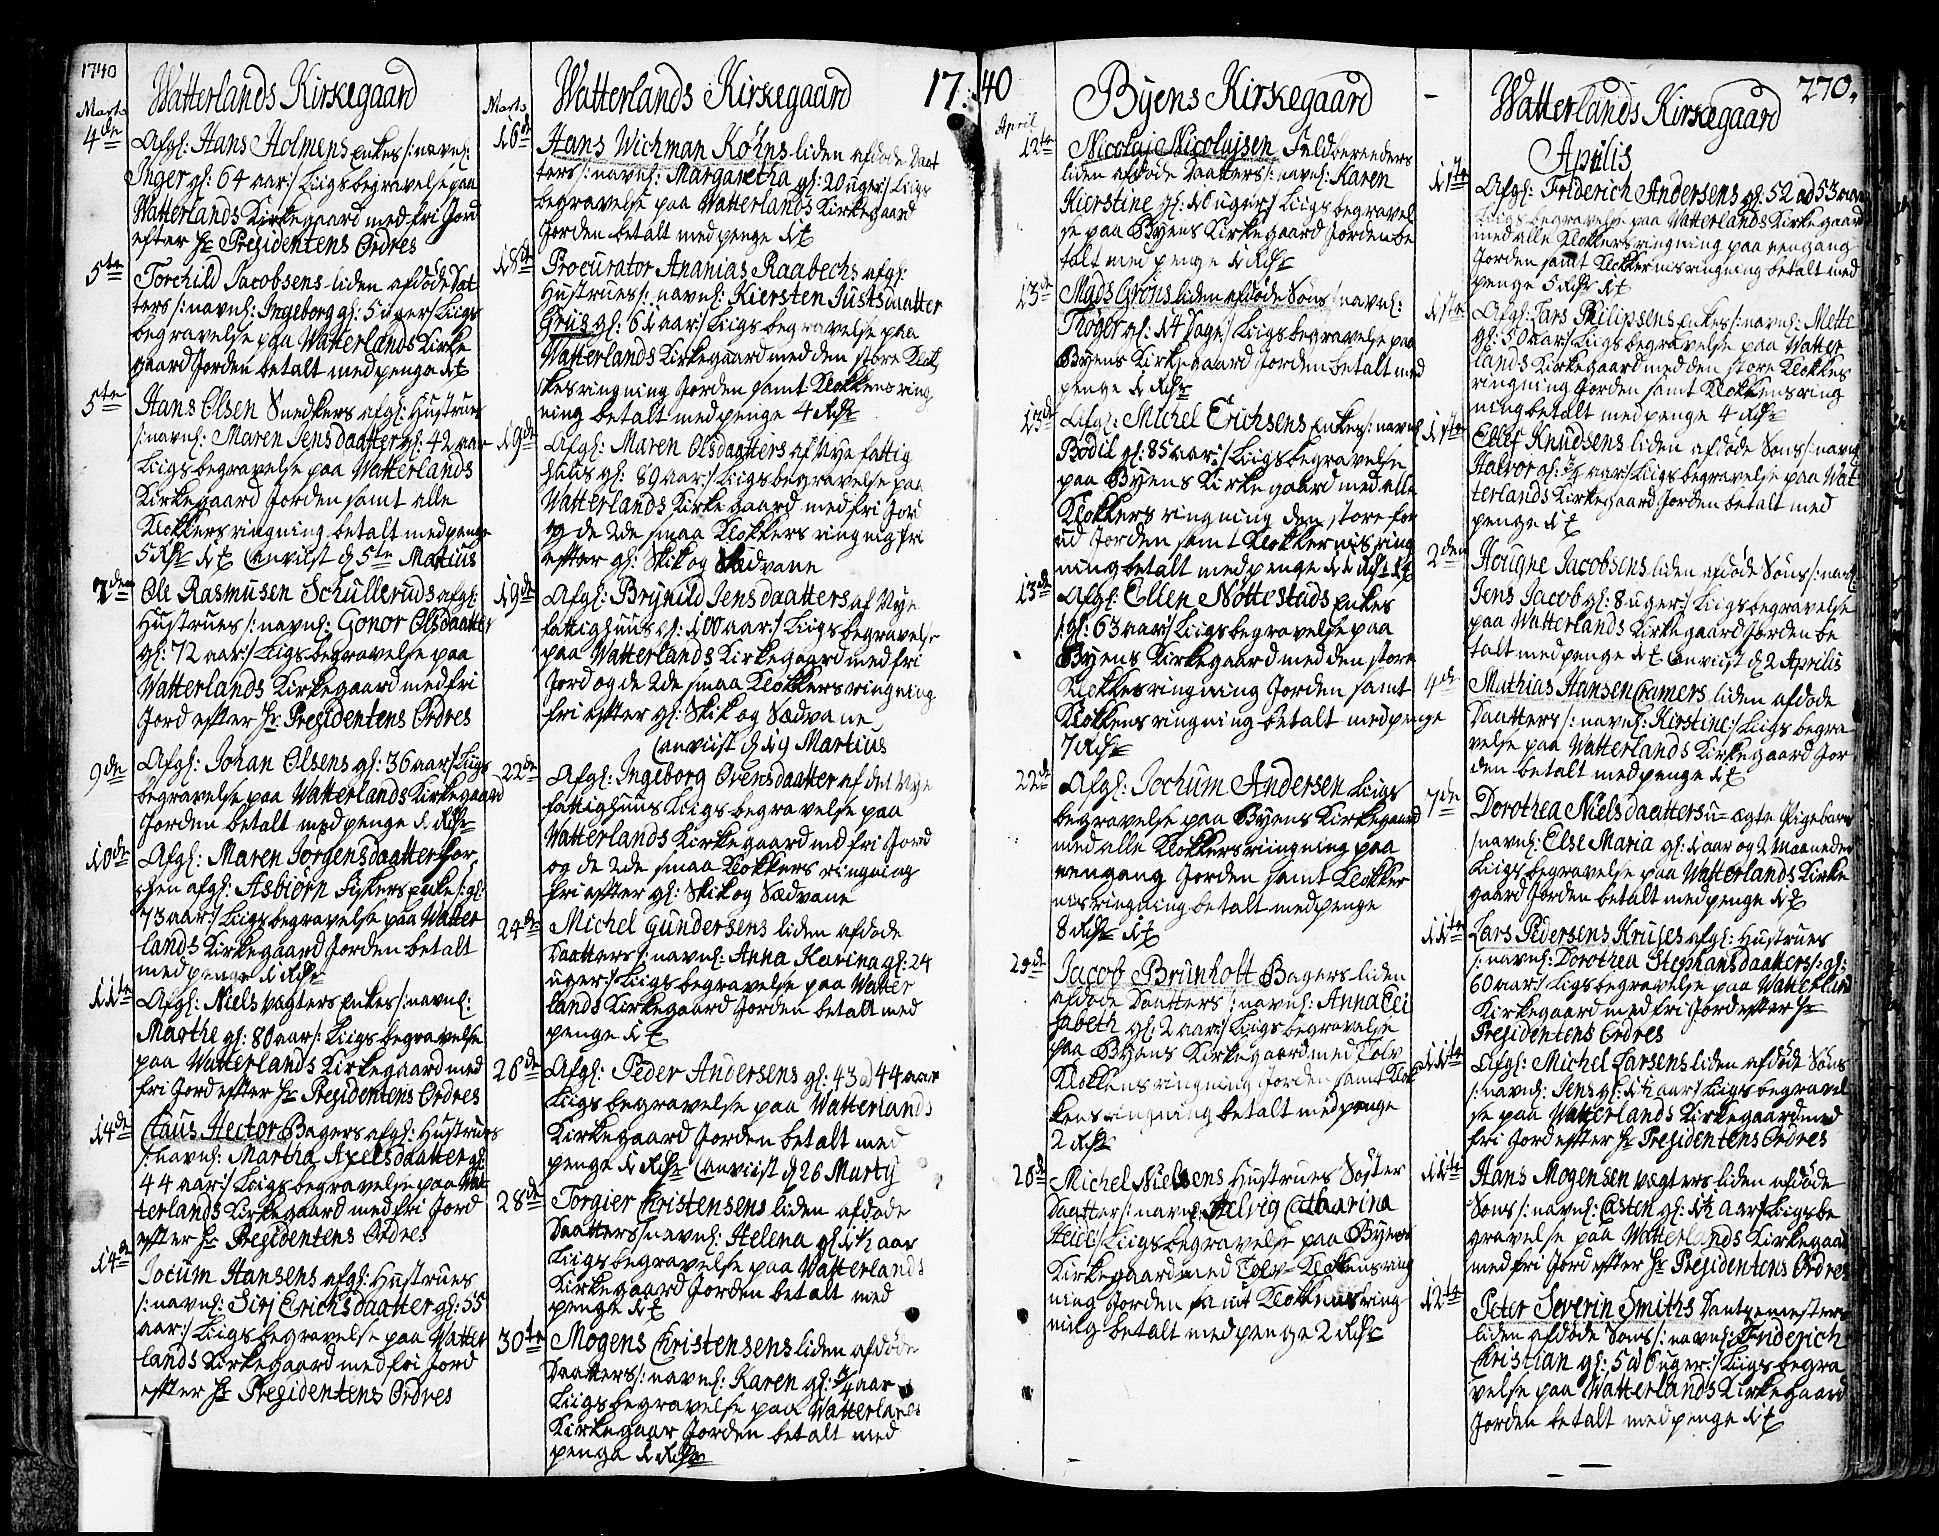 1740
Marts
Watterlands Kirkegaard
4de Afgl: Hans Holmens Enkes /:navnl:
Inger gl: 64 aar:/ Liigsbegravelse paa
Watterlands Kirkegaard med fri Jord
efter Hr Presidentens Ordres
5te Torchild Jacobsens liden afdøde Dat
ters /:navnl: Ingeborg gl: 5 uger/ Liigs
begravelse paa Watterlands Kirke
gaard Jorden betalt med penge
5te Hans Olsen Snedkers afgl: Hustrues
/:navnl: Maren Jensdaatter gl: 42 aar
Liigsbegravelse paa Watterlands
Kirkegaard Jorden samt alle
Klokkers ringning betalt med penge
5 Rdr anviist d 5te Martius
7den Ole Rasmusen Schulleruds afgl:
Hustrues /:navnl: Gonor Olsdaatter
gl: 72 aar:/ Liigsbegravelse paa
Watterlands Kirkegaard med fri
Jord effter Hr Presidentens Ordres
9de Afgl: Johan Olsens gl: 36 aar:/ Liigs
begravelse paa Watterlands Kirkegaard
Jorden betalt med penge 1 Rdr
10de Afgl: Maren Jörgensdaatter
afgl: Asbiørn Fiskers Enke /:gl:
73 aar:/ Liigsbegravelse paa Watter
lands Kirkegaard Jorden betalt
med penge 1 Rdr
11te Afgl: Niels Vægters Enkes /:navnl:
Marthe gl: 80 aar/: Liigsbegravelse
paa Watterlands Kirkegaard med
fri Jord effter Hr Presidentens Ordres
14de Claus Hector Bagers afgl: Hustrues
/:navnl: Martha Axelsdaatter gl:
44 aar:/ Liigsbegravelse paa Wat-
terlands Kirkegaard med fri Jord
effter Hr Presidentens Ordres
14de Jocum Hansens afgl: Hustrues
/:navnl: Sirj Erichsdaatter gl: 55
aar:/ Liigsbegravelse paa Watter
lands Kirkegaard med fri Jord
effter Hr Presidentens Ordres
Marts
Watterlands Kirkegaard
17
16de Hans Wichman Köhns liden afdøde Daat
ters /:navnl: Margaretha gl: 20 uger:/ Liigs
begravelse paa Watterlands Kirkegaard
Jorden betalt med penge
18de Procurator Ananias Raabechs afgl:
Hustrues /:navnl: Kiersten Justsdaatter
Gruis gl: 61 aar:/ Liigsbegravelse paa
Watterlands Kirkegaard med den store Klok
kes ringning Jorden samt Klokkens ring
ning betalt med penge 4 Rdr
19de Afgl: Maren Olsdaatters af Nye fattig
huus gl: 89 aar:/ Liigsbegravelse paa
Watterlands Kirkegaard med fri Jord
og de 2de smaa Klokkers ringnig fri
effter gl: Skik og Sædvane
19de Afgl: Brynild Jensdaatters af Nye
fattighuus gl: 100 aar:/ Liigsbegravelse
paa Watterlands Kirkegaard med fri
Jord og de 2de smaa Klokkers ringning
fri effter gl: Skik og Sædvane
anviist d 19 Martius
22de Afgl: Ingeborg Ovensdaatter af det Nye
fattighuus Liigsbegravelse paa
Watterlands Kirkegaard md fri Jord
og de 2de smaa Klokkers ringning
fri effter gl: Skik og Sædvane
24de Michel Gundersens liden afdøde
Daatters /:navnl: Anna Karina gl: 24
uger:/ Liigsbegravelse paa Watter
lands Kirkegaard Jorden betalt med
penge
26de Afgl: Peder Andersens gl: 43 a 44 aar
Liigsbegravelse paa Watterlands
Kirkegaard Jorden betalt med
penge 1 Rdr anviist d 26 Marty
28de Torgier Christensens liden afdøde
Daatters /:navnl: Helena gl: 1½ aar
Liigsbegravelse paa Watterlands
Kirkegaard Jorden betalt med
penge
30te Mogens Christensens liden afdøde
Daatters /:navnl: Karen gl: ¾ aar
Liigsbegravelse paa Watterlands
Kirkegaar Jorden betalt med
penge 1 Rdr
40
April
Byens Kirkegaard
12te Nicolaj Nicolajsen Feldberenders
liden afdøde Daatters /:navnl: Karen
Kierstine gl: 16 uger:/ Liigsbegravel
se paa Byens Kirkegaard Jorden be
talt med penge 1 Rdr
13de Mads Gröns liden afdøde Söns /:navnl:
Tröger gl: 14 Dage:/ Liigsbegravelse paa
Byens Kirkegaard Jorden betalt med
penge 1 Rdr
13de Afgl: Michel Erichsens Enkes /:navnl
Bodil gl: 85 aar:/ Liigsbegravelse
paa Byens Kirkegaard med alle
Klokkers ringning den store for
ud Jorden samt Klokkernis ring
ning betalt med penge 11 Rdr
13de Afgl: Ellen Nöttestads Enkes
/:gl: 63 aar:/ Liigsbegravelse paa
Byens Kirkegaard med den store
Klokkes ringning Jorden samt
Klokkens ringning betalt med penge
7 Rdr
22de Afgl: Jochum Andersen Liigs
begravelse paa Byens Kirkegaard
med alle Klokkers riingning paa
eengang Jorden samt Klokker
nis ringning betalt med penge
8 Rdr
Jacob Brunholt Bagers liden
afdøde Daatters /:navnl: Anna Eli
sabeth gl: 2 aar:/ Liigsbegravelse
paa Byens Kirkegaard med Tolv
Klokkens ringning Jorden samt Klok
kens ringning betalt med penge
2 Rdr
Michel Nielsens Hustrues Söster
Daatter /:navnl: Helvig Catharina
Heidi:/ Liigsbegravelse paa Byens
Kirkegaard med Tolv Klokkens ring
ning Jorden samt Klokkens ring
ning betalt med penge 2 Rdr
270.
Watterlands Kirkegaard
Aprilis
1te Afgl: Friderich Andersens gl: 52 ad 53 aar
Liigsbegravelse paa Watterlands Kirkegaard
med alle Klokkers ringning paa eengang
Jorden samt Klokkernis ringning betalt med
penge 5 Rdr
1te Afgl: Lars Philipsens Enkes /:navnl: Mette
gl: 50 aar/ Liigsbegravelse paa Watter
lands Kirkegaard med den store Klokkes
ringning Jorden samt Klokkens ring
ning betalt med penge 4 Rdr
1te Ellef Knudsens liden afdøde Söns /:navnl
Halvor gl: ¾ aar:/ Liigsbegravelse paa Wat
terlands Kirkegaard Jorden betalt med
penge
2den Hougne Jacobsens liden afdøde Söns /:navl
Jens Jacob gl: 8 uger:/ Liigsbegravelse
paa Watterlands Kirkegaard Jorden be
talt med penge anviist d 2 Aprilis
4de Mathias Hansen Cramers liden afdøde
Daatters /:navnl: Kirstine:/ Liigsbegra
velse paa Watterlands Kirkegaard Jor
den betalt med penge
7de Dorothea Nielsdaatters u=ægte Pigebarn
/navnl: Else Maria gl: 1 aar og 2 Maaneder
Liigsbegravelse paa Watterlands Kirke
gaard Jorden betalt med penge
11te Lars Pedersens Kruses afgl: Hustrues
/:navnl: Dorothea Stephansdaatters /:gl:
60 aar:/ Ligsbegravelse paa Watterland
Kirkegaard med fri Jord effter Hr
Presidentens Ordres
11te Afgl: Michel Larsens liden afdøde Söns
/:navnl: Jens gl: 1½ aar:/ Liigsbegravel
se paa Watterlands Kirkegaard med
fri Jord effter Hr Presidentens Ordres
11te Hans Mogensen Vægters liden afdøde
Söns /:navnl: Casten gl: 1½ aar:/ Liigsbe
gravelse paa Watterlands Kirkegaard
med fri Jord effter Hr Presidentens Ordres
12te Peter Severin Smiths Dantzemesters
liden afdøde Söns /:navnl: Friderich
Christian gl: 5 a 6 uger:/ Liigsbegra
velse paa Watterlands Kirkegaard
Jorden betalt med penge